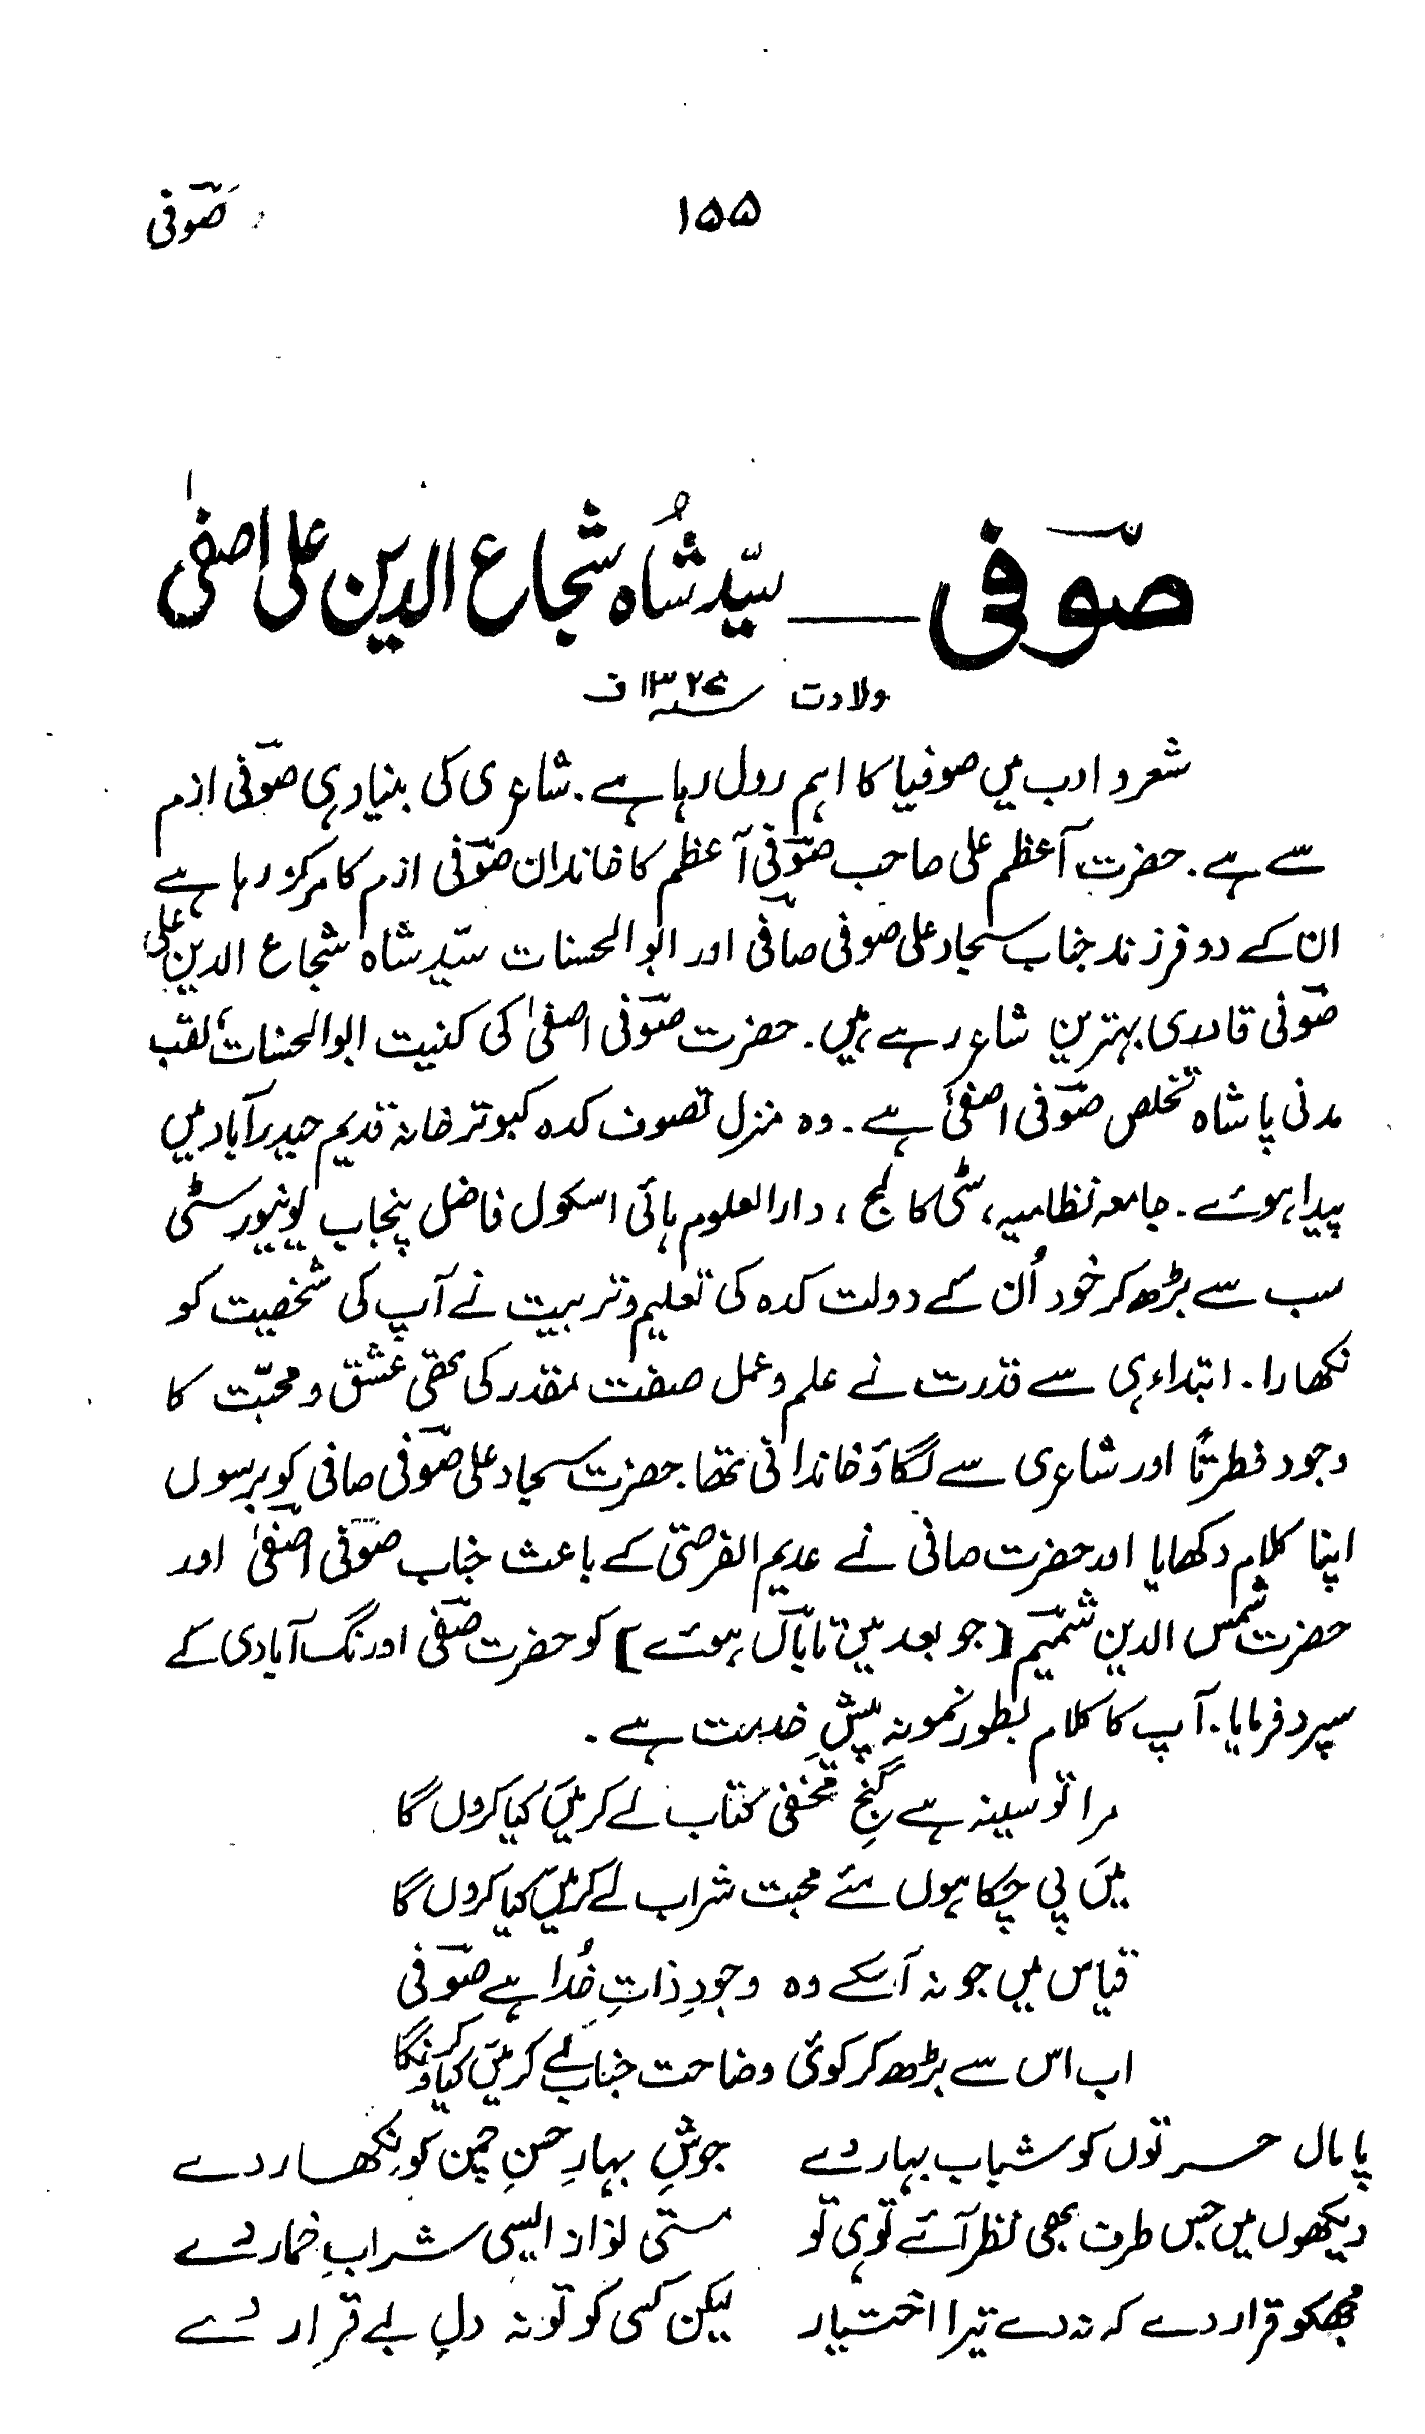 صوفی
۱۵۵
صوفی — سیّد شاہ شجاع الدین علی اصفیٰ
ولادت ۱۳۲۷ ف
شعر و ادب میں صوفیا کا اہم رول رہا ہے۔ شاعری کی بنیاد ہی صوفی ازم
سے ہے۔ حضرت آعظم علی صاحب صوفی آعظم کا خاندان صوفی ازم کا مرکز رہا ہے
ان کے دو فرزند جناب سجاد علی صوفی صافی اور ابوالحسنات سیّد شاہ شجاع الدین علی
صوفی قادری بہترین شاعر رہے ہیں۔ حضرت صوفی اصفیٰ کی کنیت ابوالحسنات، لقب
مدنی پاشاہ تخلص صوفی اصفیٰ ہے۔ وہ منزل تصوف کدہ کبوتر خانہ قدیم حیدرآباد میں
پیدا ہوئے۔ جامعہ نظامیہ، سٹی کالج، دارالعلوم ہائی اسکول فاضل پنجاب یونیورسٹی
سب سے بڑھ کر خود اُن کے دولت کدہ کی تعلیم و تربیت نے آپ کی شخصیت کو
نکھارا۔ ابتداء ہی سے قدرت نے علم و عمل صفت مقدر کی تھی عشق و محبّت کا
وجود فطرتاً اور شاعری سے لگاؤ خاندانی تھا۔ حضرت سجاد علی صوفی صافی کو برسوں
اپنا کلام دکھایا اور حضرت صافی نے عدیم الفرصتی کے باعث جناب صوفی اصفیٰ اور
حضرت شمس الدین شمیم [جو بعد میں تاباں ہوئے] کو حضرت صفی اورنگ آبادی کے
سپرد فرمایا۔ آپ کا کلام بطور نمونہ پیشِ خدمت ہے۔
مرا تو سینہ ہے گنجِ مخفی کتاب لے کر میں کیا کروں گا
میں پی چکا ہوں مئے محبت شراب لے کر میں کیا کروں گا
قیاس میں جو نہ آسکے وہ وجودِ ذاتِ خُدا ہے صوفی
اب اس سے بڑھ کر کوئی وضاحت جناب لے کر میں کیا کرونگا
پامال حسرتوں کو شباب بہار دے جوشِ بہارِ حسنِ چمن کو نکھار دے
دیکھوں میں جس طرف بھی نظر آئے تو ہی تو مستی نواز ایسی شرابِ خمار دے
مجھکو قرار دے کہ نہ دے تیرا اختیار لیکن کسی کو تو نہ دلِ بے قرار دے